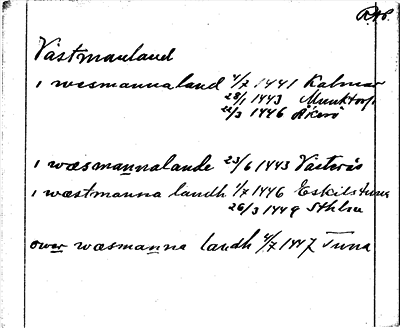 R.A.P.
Västmanland
i wesmannaland 4/7 1441 Kalmar
28/1 1443 Munktorp
22/3 1446 Åkerö
i wæsmannalande 23/6 1443 Västerås
i wæstmanna landh 1/7 1446 Eskilstuna
26/3 1449 Sthlm
ower wæsmanna landh 4/7 1447 Tuna